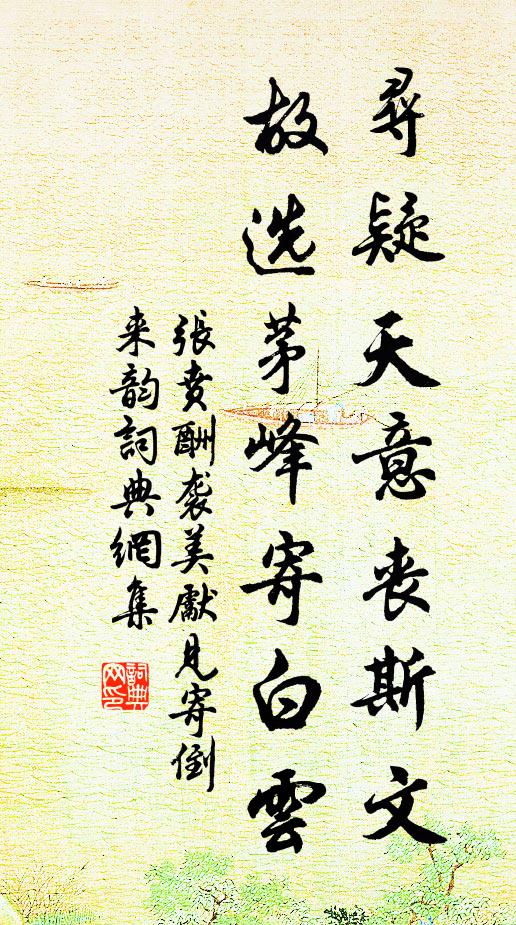 尋疑天意喪斯文
故选茅峰寄白雲
張賁酬袭美獻見寄倒
来韵詞典網集
詞典